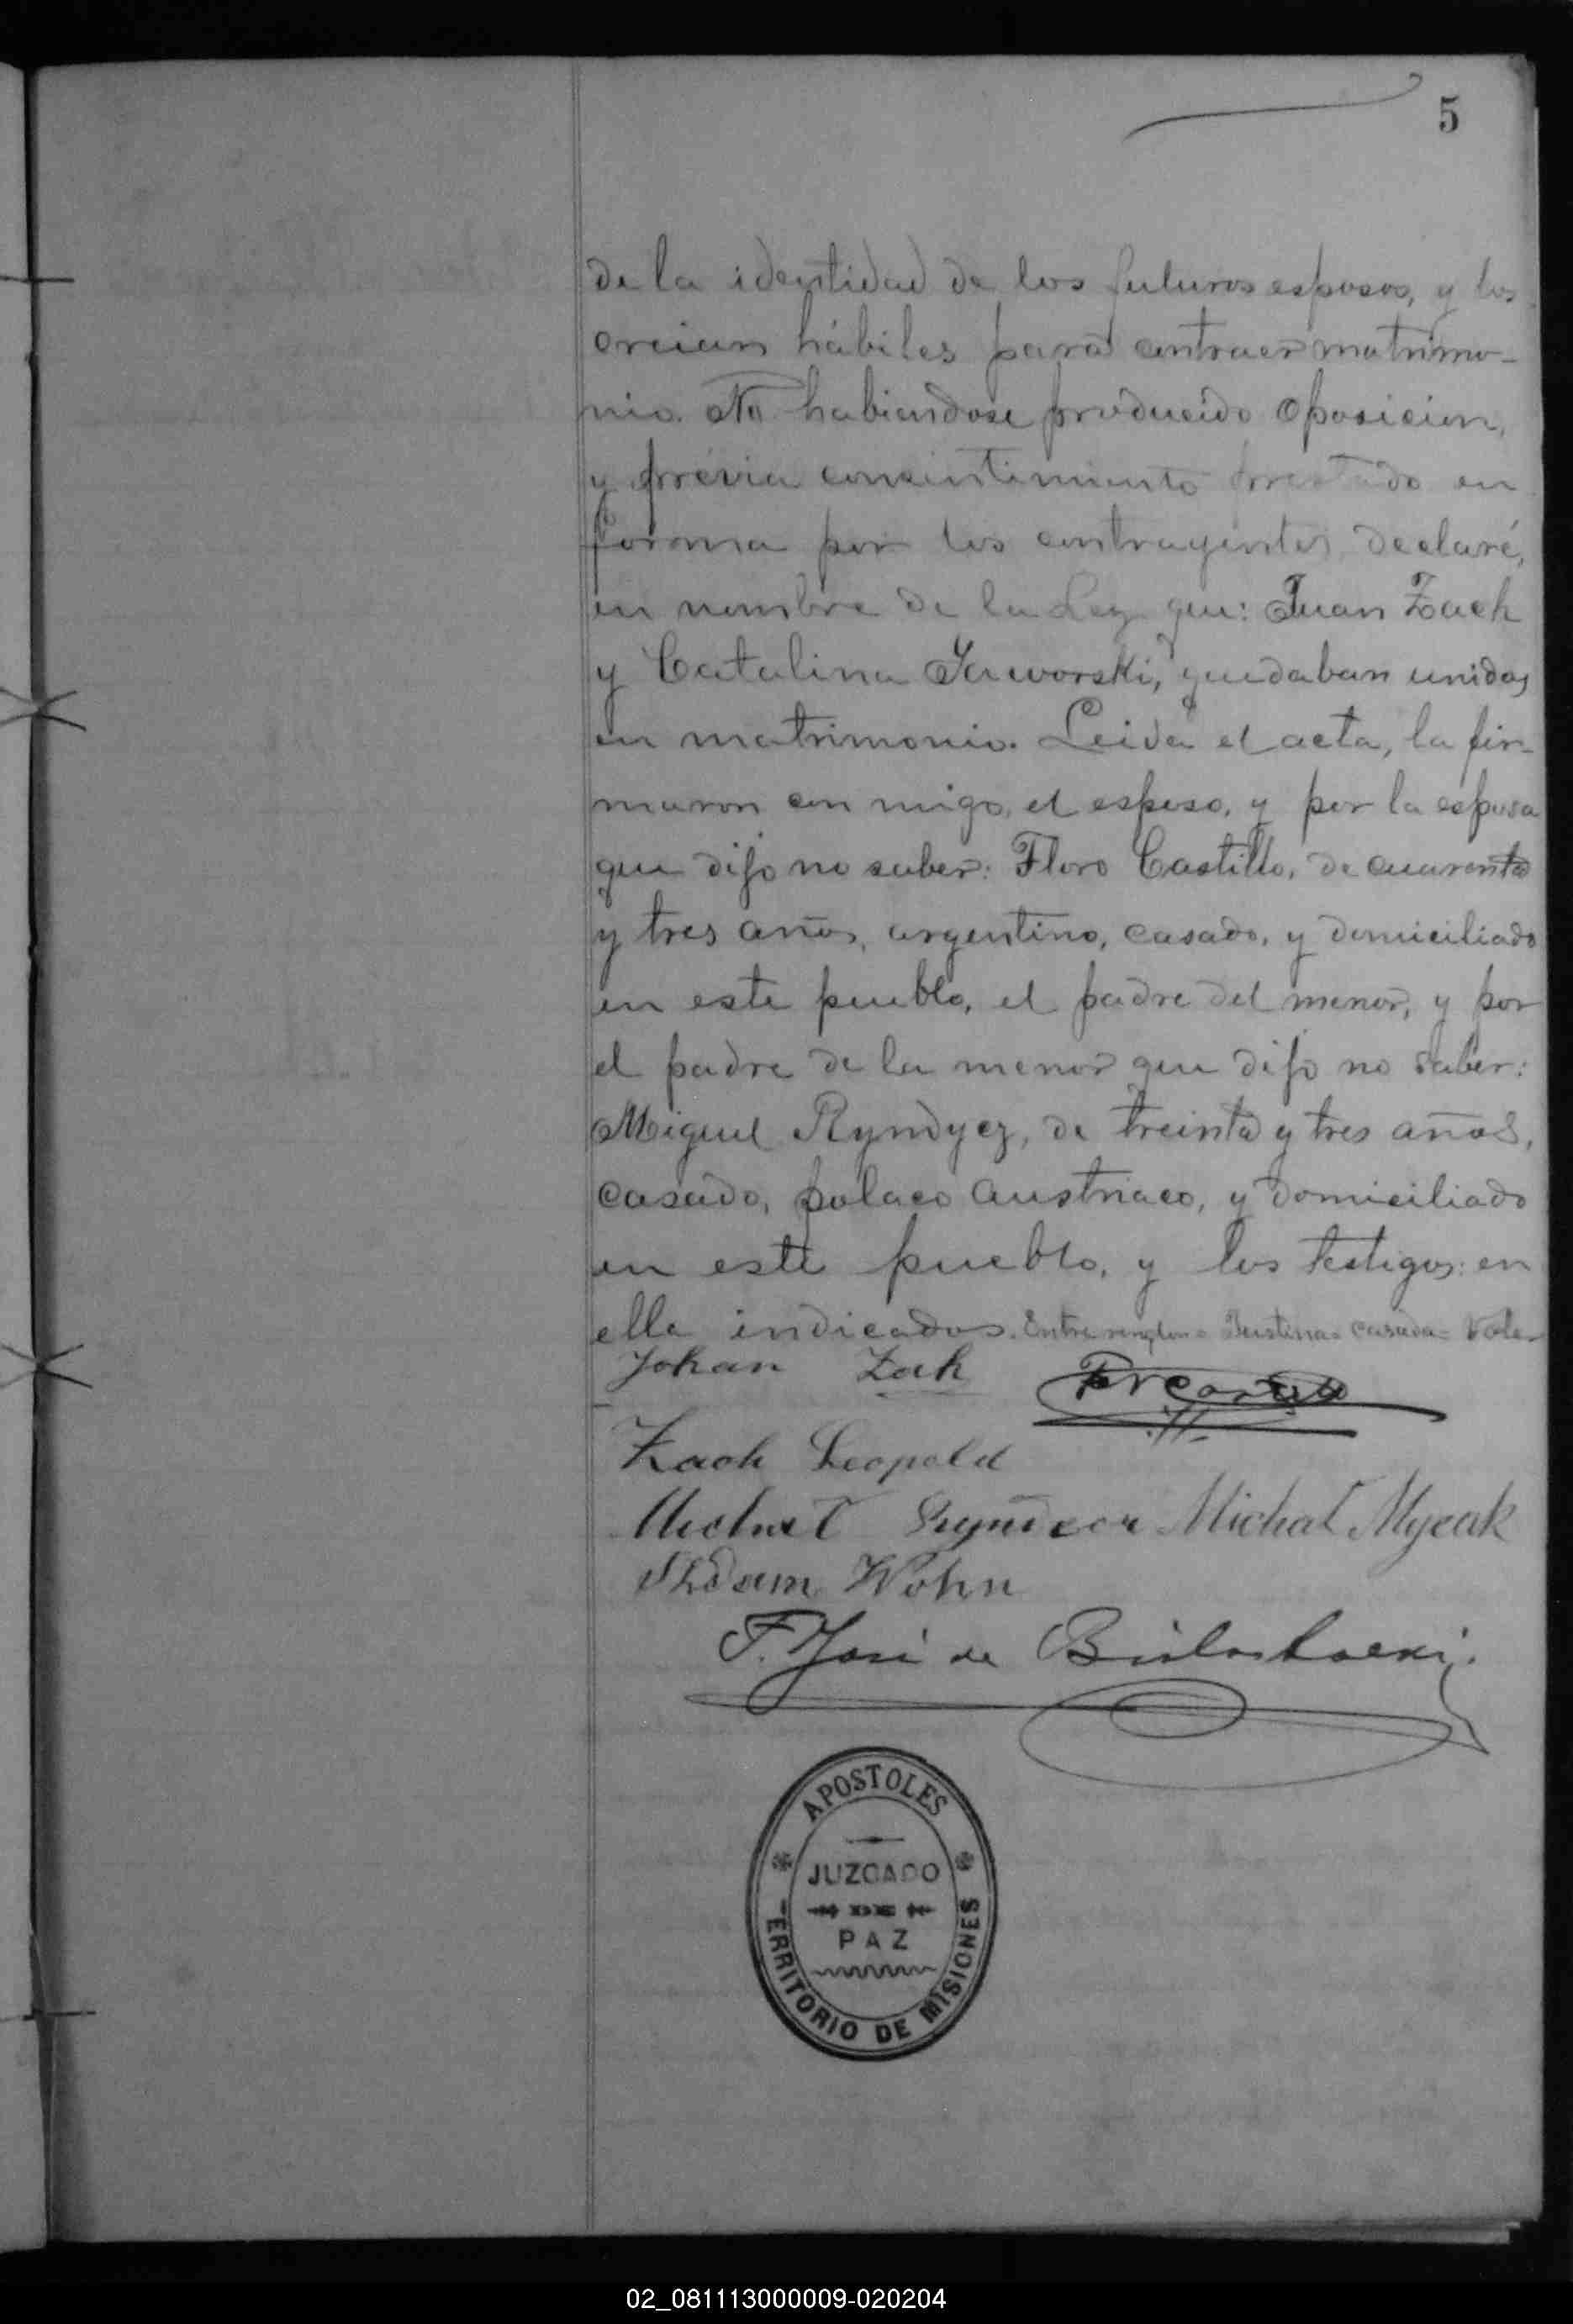 5
de la identidad de los futuros esposos, y los
creian hábiles para contraer matrimo-
nio. No habiendose producido oposicion,
y prévia consintimiento prestado en
forma por los contrayentes, declaré,
en nombre de la Ley que: Juan Zach
y Catalina Jaworski, quedaban unidos
en matrimonio. Leida el acta, la fir-
maron con migo, el esposo, y por la esposa
que dijo no saber: Floro Castillo, de cuarenta
y tres años, argentino, casado, y domiciliado
en este pueblo, el padre del menor, y por
el padre de la menor que dijo no saber:
Miguel Ryndycz, de treinta y tres años,
casado, polaco austriaco, y domiciliado
en este pueblo, y los testigos: en
ella indicados. Entre renglon= Justina= casada= Vale-
Johan Zah
Zach Leopold
Michał Michał Mycak
Adam Wohn
F. José de Bialostocki.
APOSTOLES
JUZGADO
DE
PAZ
TERRITORIO DE MISIONES
02_081113000009-020204